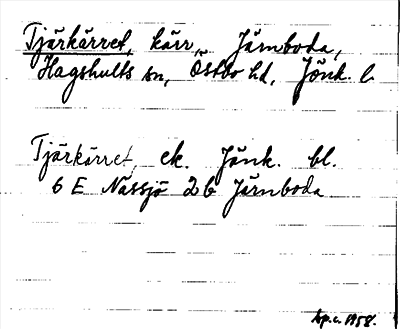 Tjärkärret, kärr, Järnboda,
Hagshults sn, Östbo hd, Jönk. l.
Tjärkärret, ek. Jönk. bl.
6 E Nässjö 2b Järnboda
1958.